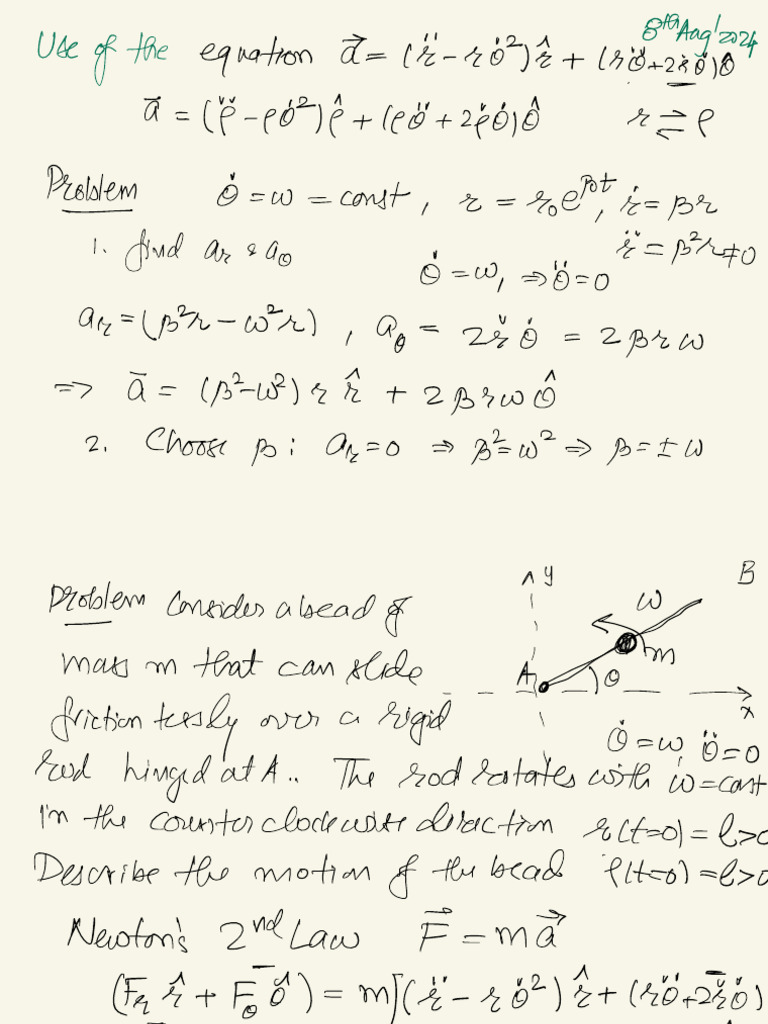 8th Aug' 2024
Use of the equation a⃗ = (r̈ - rθ̇²)r̂ + (rθ̈ + 2ṙθ̇)θ̂
a⃗ = (ρ̈ - ρθ̇²)ρ̂ + (ρθ̈ + 2ρ̇θ̇)θ̂ r ⇌ ρ
Problem θ̇ = ω = const, r = r₀e^βt, ṙ = βr
1. find aᵣ & a_θ r̈ = β²r ≠ 0
θ̇ = ω, ⇒ θ̈ = 0
aᵣ = (β²r - ω²r), a_θ = 2ṙθ̇ = 2βrω
⇒ a⃗ = (β² - ω²) r r̂ + 2βrω θ̂
2. Choose β : aᵣ = 0 ⇒ β² = ω² ⇒ β = ± ω
y B
ω
m
A θ
x
θ̇ = ω, θ̈ = 0
Problem Consider a bead of
mass m that can slide
frictionlessly over a rigid
rod hinged at A.. The rod rotates with ω = const
in the counter clockwise direction r(t=0) = l > 0
Describe the motion of the bead ρ(t=0) = l > 0
Newton's 2nd Law F⃗ = ma⃗
(Fᵣ r̂ + F_θ θ̂) = m[(r̈ - rθ̇²) r̂ + (rθ̈ + 2ṙθ̇)